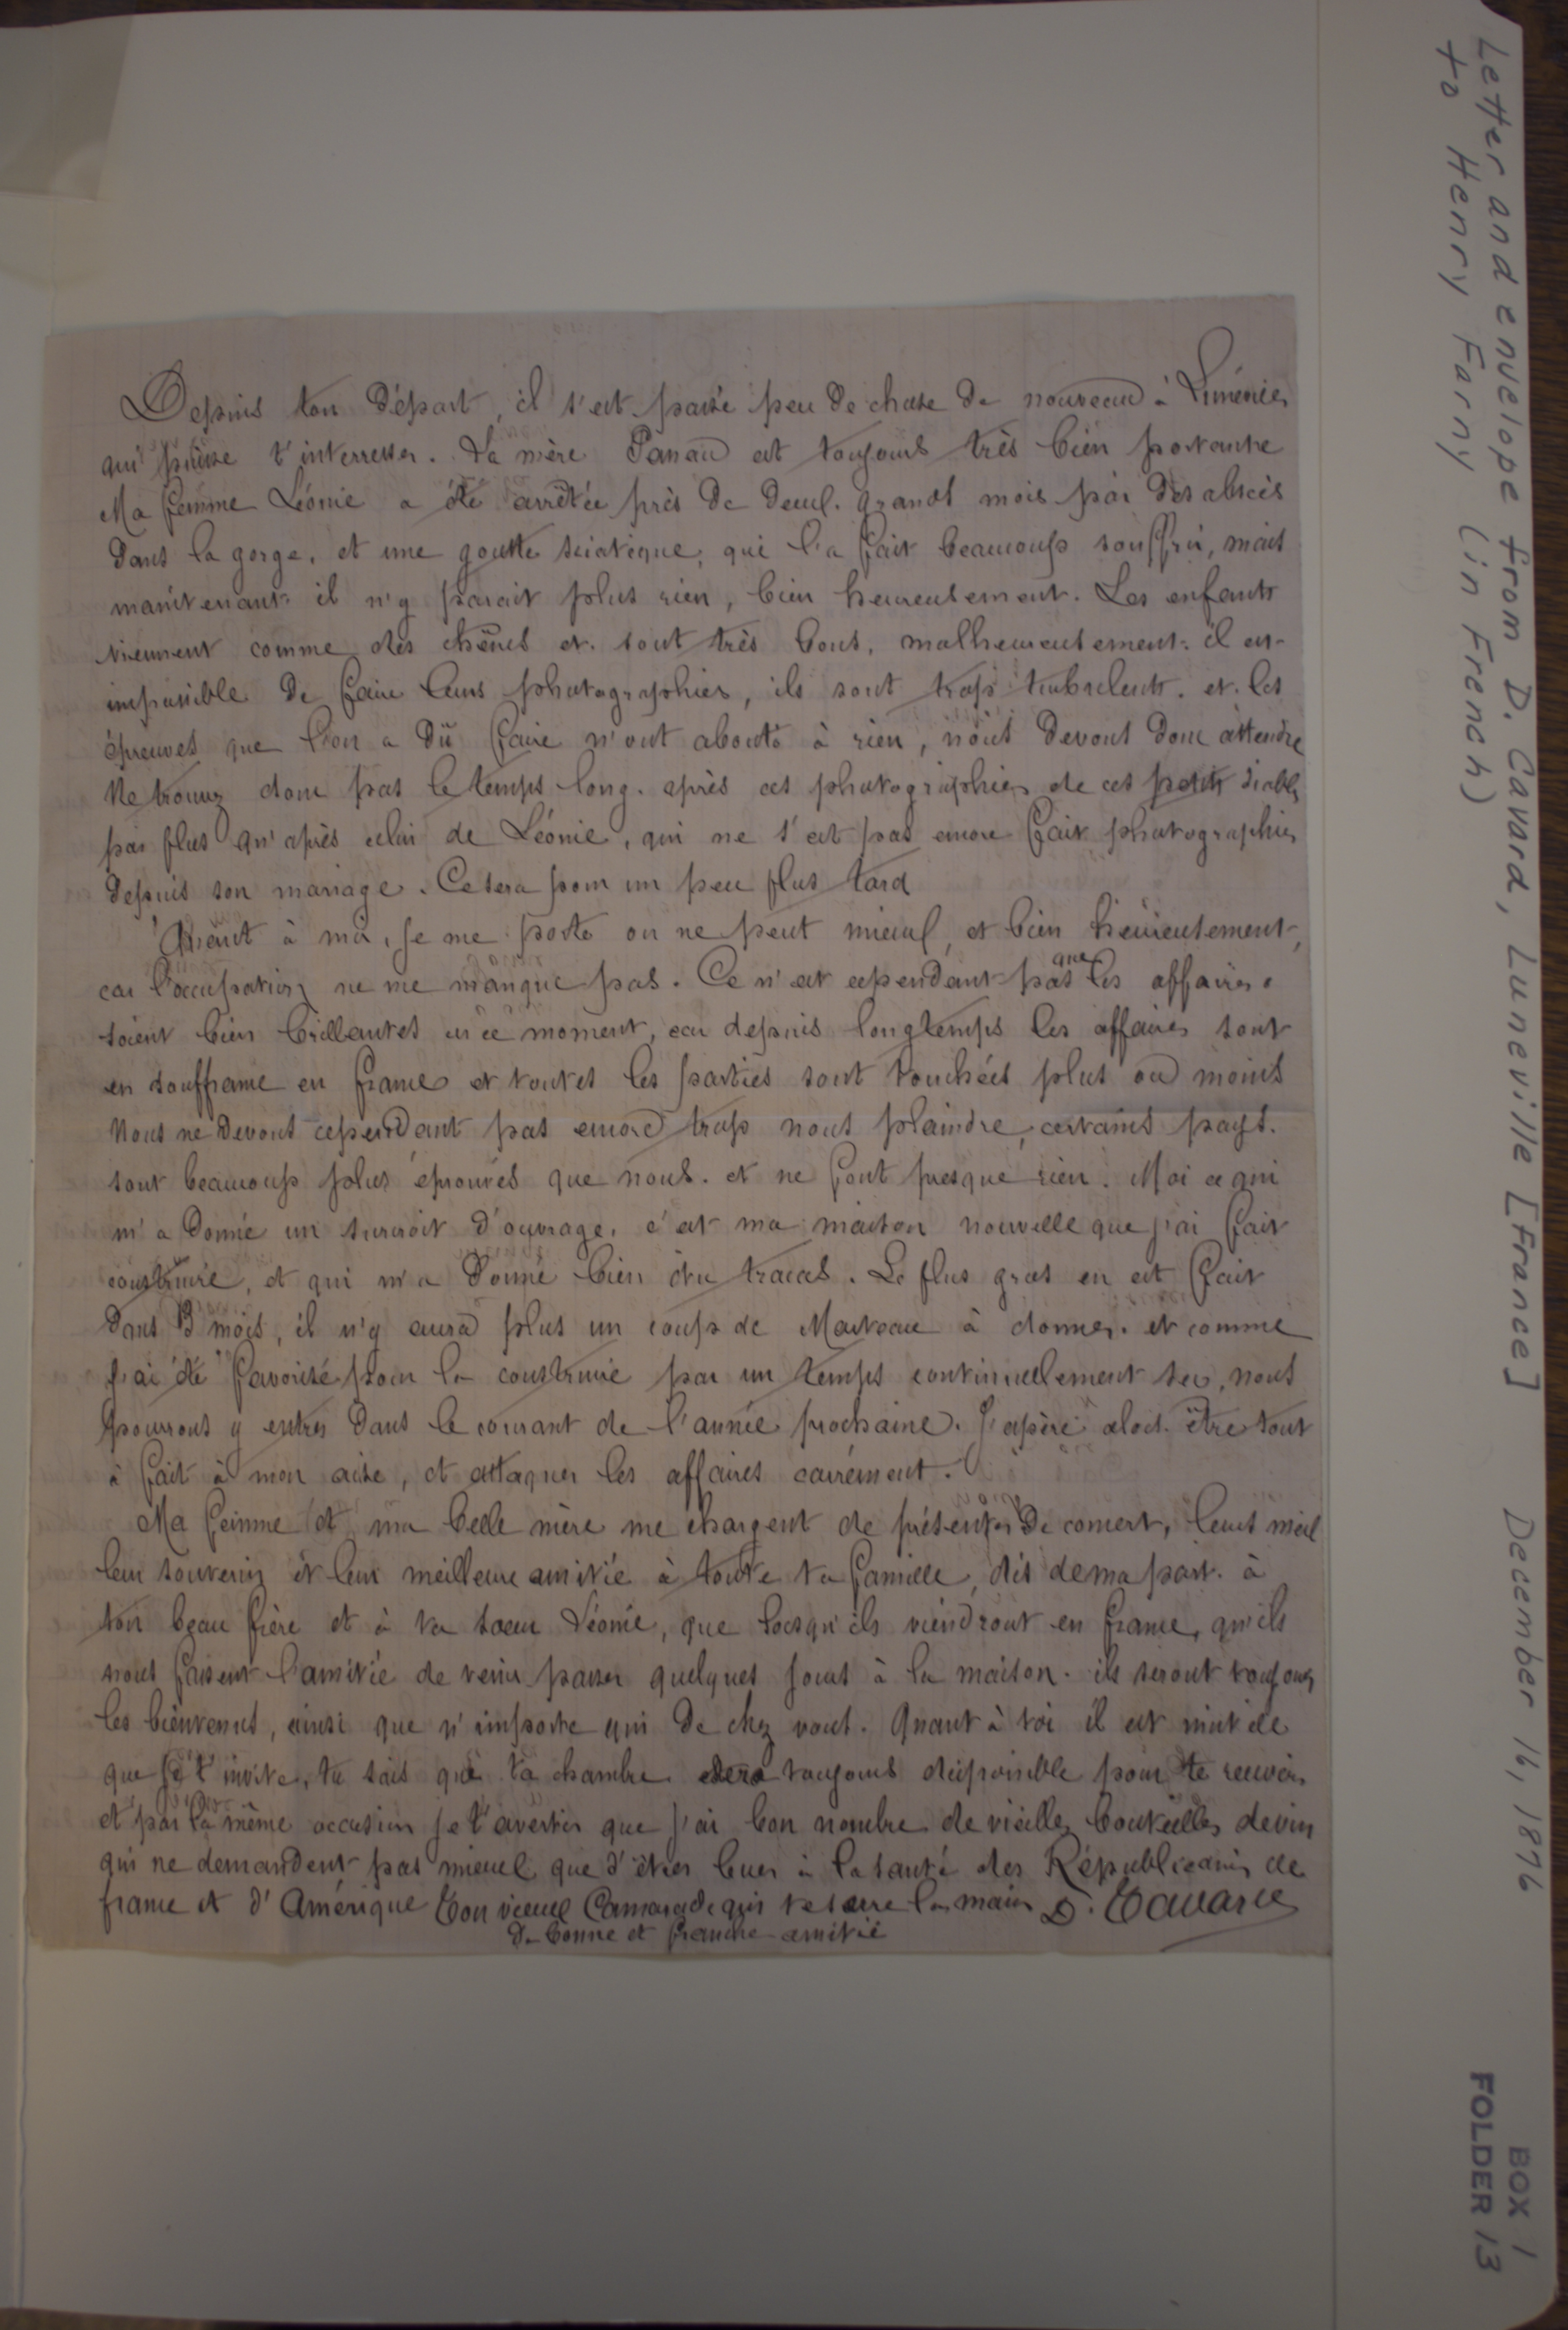 Depuis ton départ, il s'est passé peu de chose de nouveau à
qui puisse t'interresser. La mère Panau est toujours très bien portante
Ma femme Léonie a été arrêtée près de deux grands mois par des abscès
dans la gorge, et une goutte sciatique, qui l'a fait beaucoup souffrir, mais
maintenant il n'y parait plus rien, bien heureusement. Les enfants
viennent comme des chênes et sont très bons, malheureusement il est
impossible de faire leurs photographies, ils sont trop turbulents. et les
épreuves que l'on a dû faire n'ont abouti à rien, nous devons donc attendre
Ne trouvez donc pas le temps long après ces photographies de ces petits diables
pas plus qu'après celui de Léonie, qui ne s'est pas encore fait photographier
depuis son mariage. Ce sera pour un peu plus tard
Quant à moi, je me porte on ne peut mieux, et bien heureusement,
car l'occupation ne me manque pas. Ce n'est cependant pas que les affaires
soient bien brillantes en ce moment, car depuis longtemps les affaires sont
en souffrance en france et toutes les parties sont touchées plus ou moins
Nous ne devons cependant pas encore trop nous plaindre, certains pays
sont beaucoup plus éprouvés que nous. et ne font presque rien. Moi ce qui
m'a donné un surcroit d'ouvrage, c'est ma maison nouvelle que j'ai fait
construire, et qui m'a donné bien du tracas. Le plus gros en est fait
dans 3 mois, il n'y aura plus un coup de Marteau à donner. et comme
j'ai été favorisé pour la construire par un temps continuellement sec, nous
pourrons y entrer dans le courant de l'année prochaine. J'espère alors être tout
à fait à mon aise, et attaquer les affaires carrément.
Ma femme et ma belle mère me chargent de présenter de concert, leurs meil
leur souvenir et leur meilleure amitié à toute ta famille, dis de ma part à
ton beau frère et à ta soeur Léonie, que lorsqu'ils viendront en france, qu'ils
nous fassent l'amitié de venir passer quelques jours à la maison. ils seront toujours
les bienvenus, ainsi que n'importe qui de chez vous. Quant à toi il est inutile
que je t'invite, tu sais que ta chambre sera toujours disponible pour te recevoir
et par la même occasion je t'avertis que j'ai bon nombre de vieilles bouteilles de vin
qui ne demandent pas mieux que d'êtres bues à la santé des Républicains de
france et d'Amérique Ton vieux Camarade qui te serre la main D. Cavard
de bonne et franche amitié
Letter and envelope from D. Cavard, Luneville [France] December 16, 1876
to Henry Farny (in French)
BOX 1
FOLDER 13